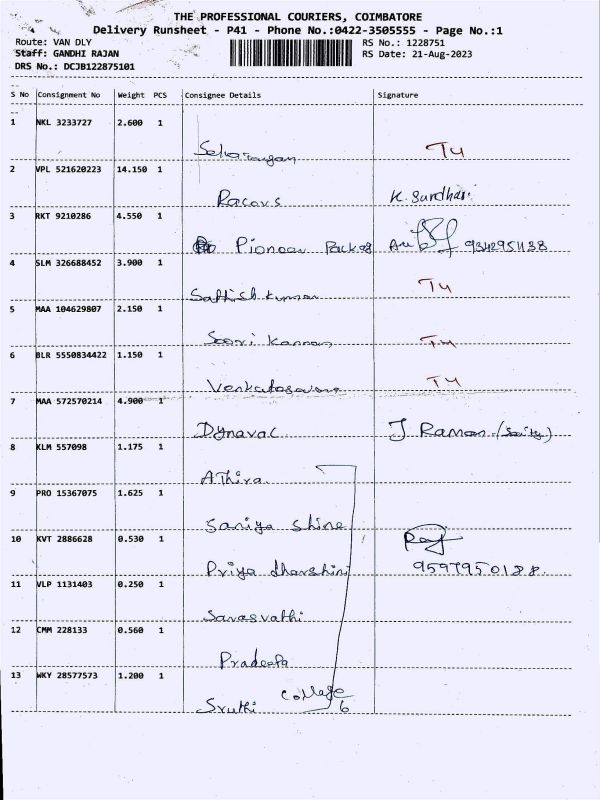 THE PROFESSIONAL COURIERS, COIMBATORE
Delivery Runsheet - P41 - Phone No.:0422-3505555 - Page No.:1
Route: VAN DLY RS No.: 1228751
Staff: GANDHI RAJAN RS Date: 21-Aug-2023
DRS No.: DCJB122875101
S No Consignment No Weight PCS Consignee Details Signature
1 NKL 3233727 2.600 1
T4
2 VPL 521620223 14.150 1
Racovs K. Surdhari
3 RKT 9210286 4.550 1
Pioneer
4 SLM 326688452 3.900 1
Sathish kumar T4
5 MAA 104629807 2.150 1
Soori Kannan T4
6 BLR 5550834422 1.150 1
T4
7 MAA 572570214 4.900 1
Dynavac J Raman
8 KLM 557098 1.175 1
Athira
9 PRO 15367075 1.625 1
Saniya Shine
10 KVT 2886628 0.530 1
Priya dharshini 9597950188
11 VLP 1131403 0.250 1
Sarasvathi
12 CMM 228133 0.560 1
Pradeepa
13 WKY 28577573 1.200 1
Sruthi College 6